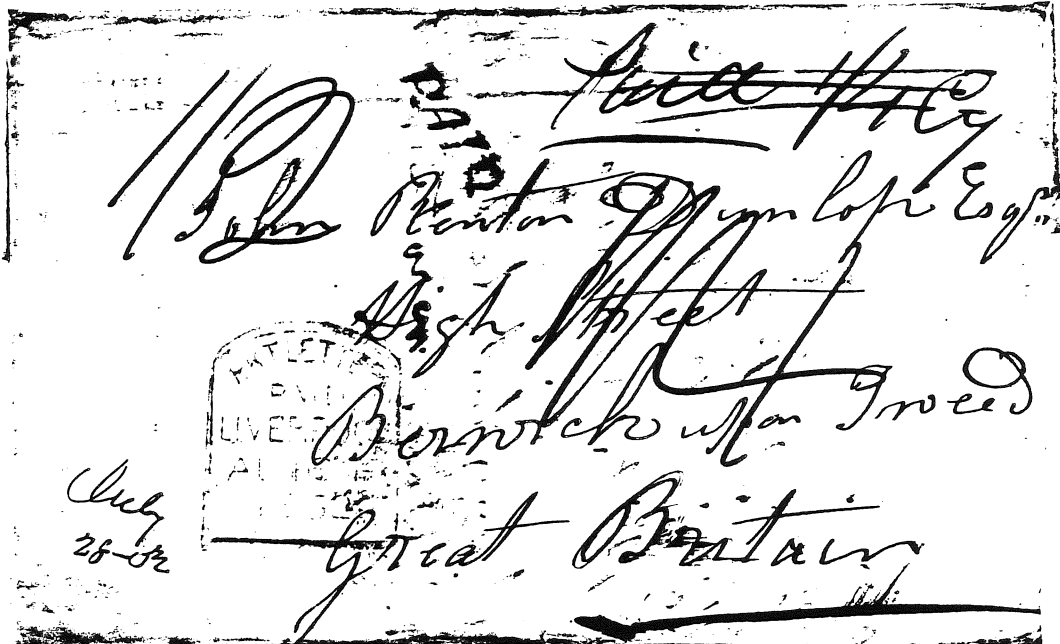 Paid
PAID
John Renton Dunlop Esqr.
High Street
Berwick upon Tweed
Great Britain
PAT LETTER
PAID
LIVERPOOL
July
28-